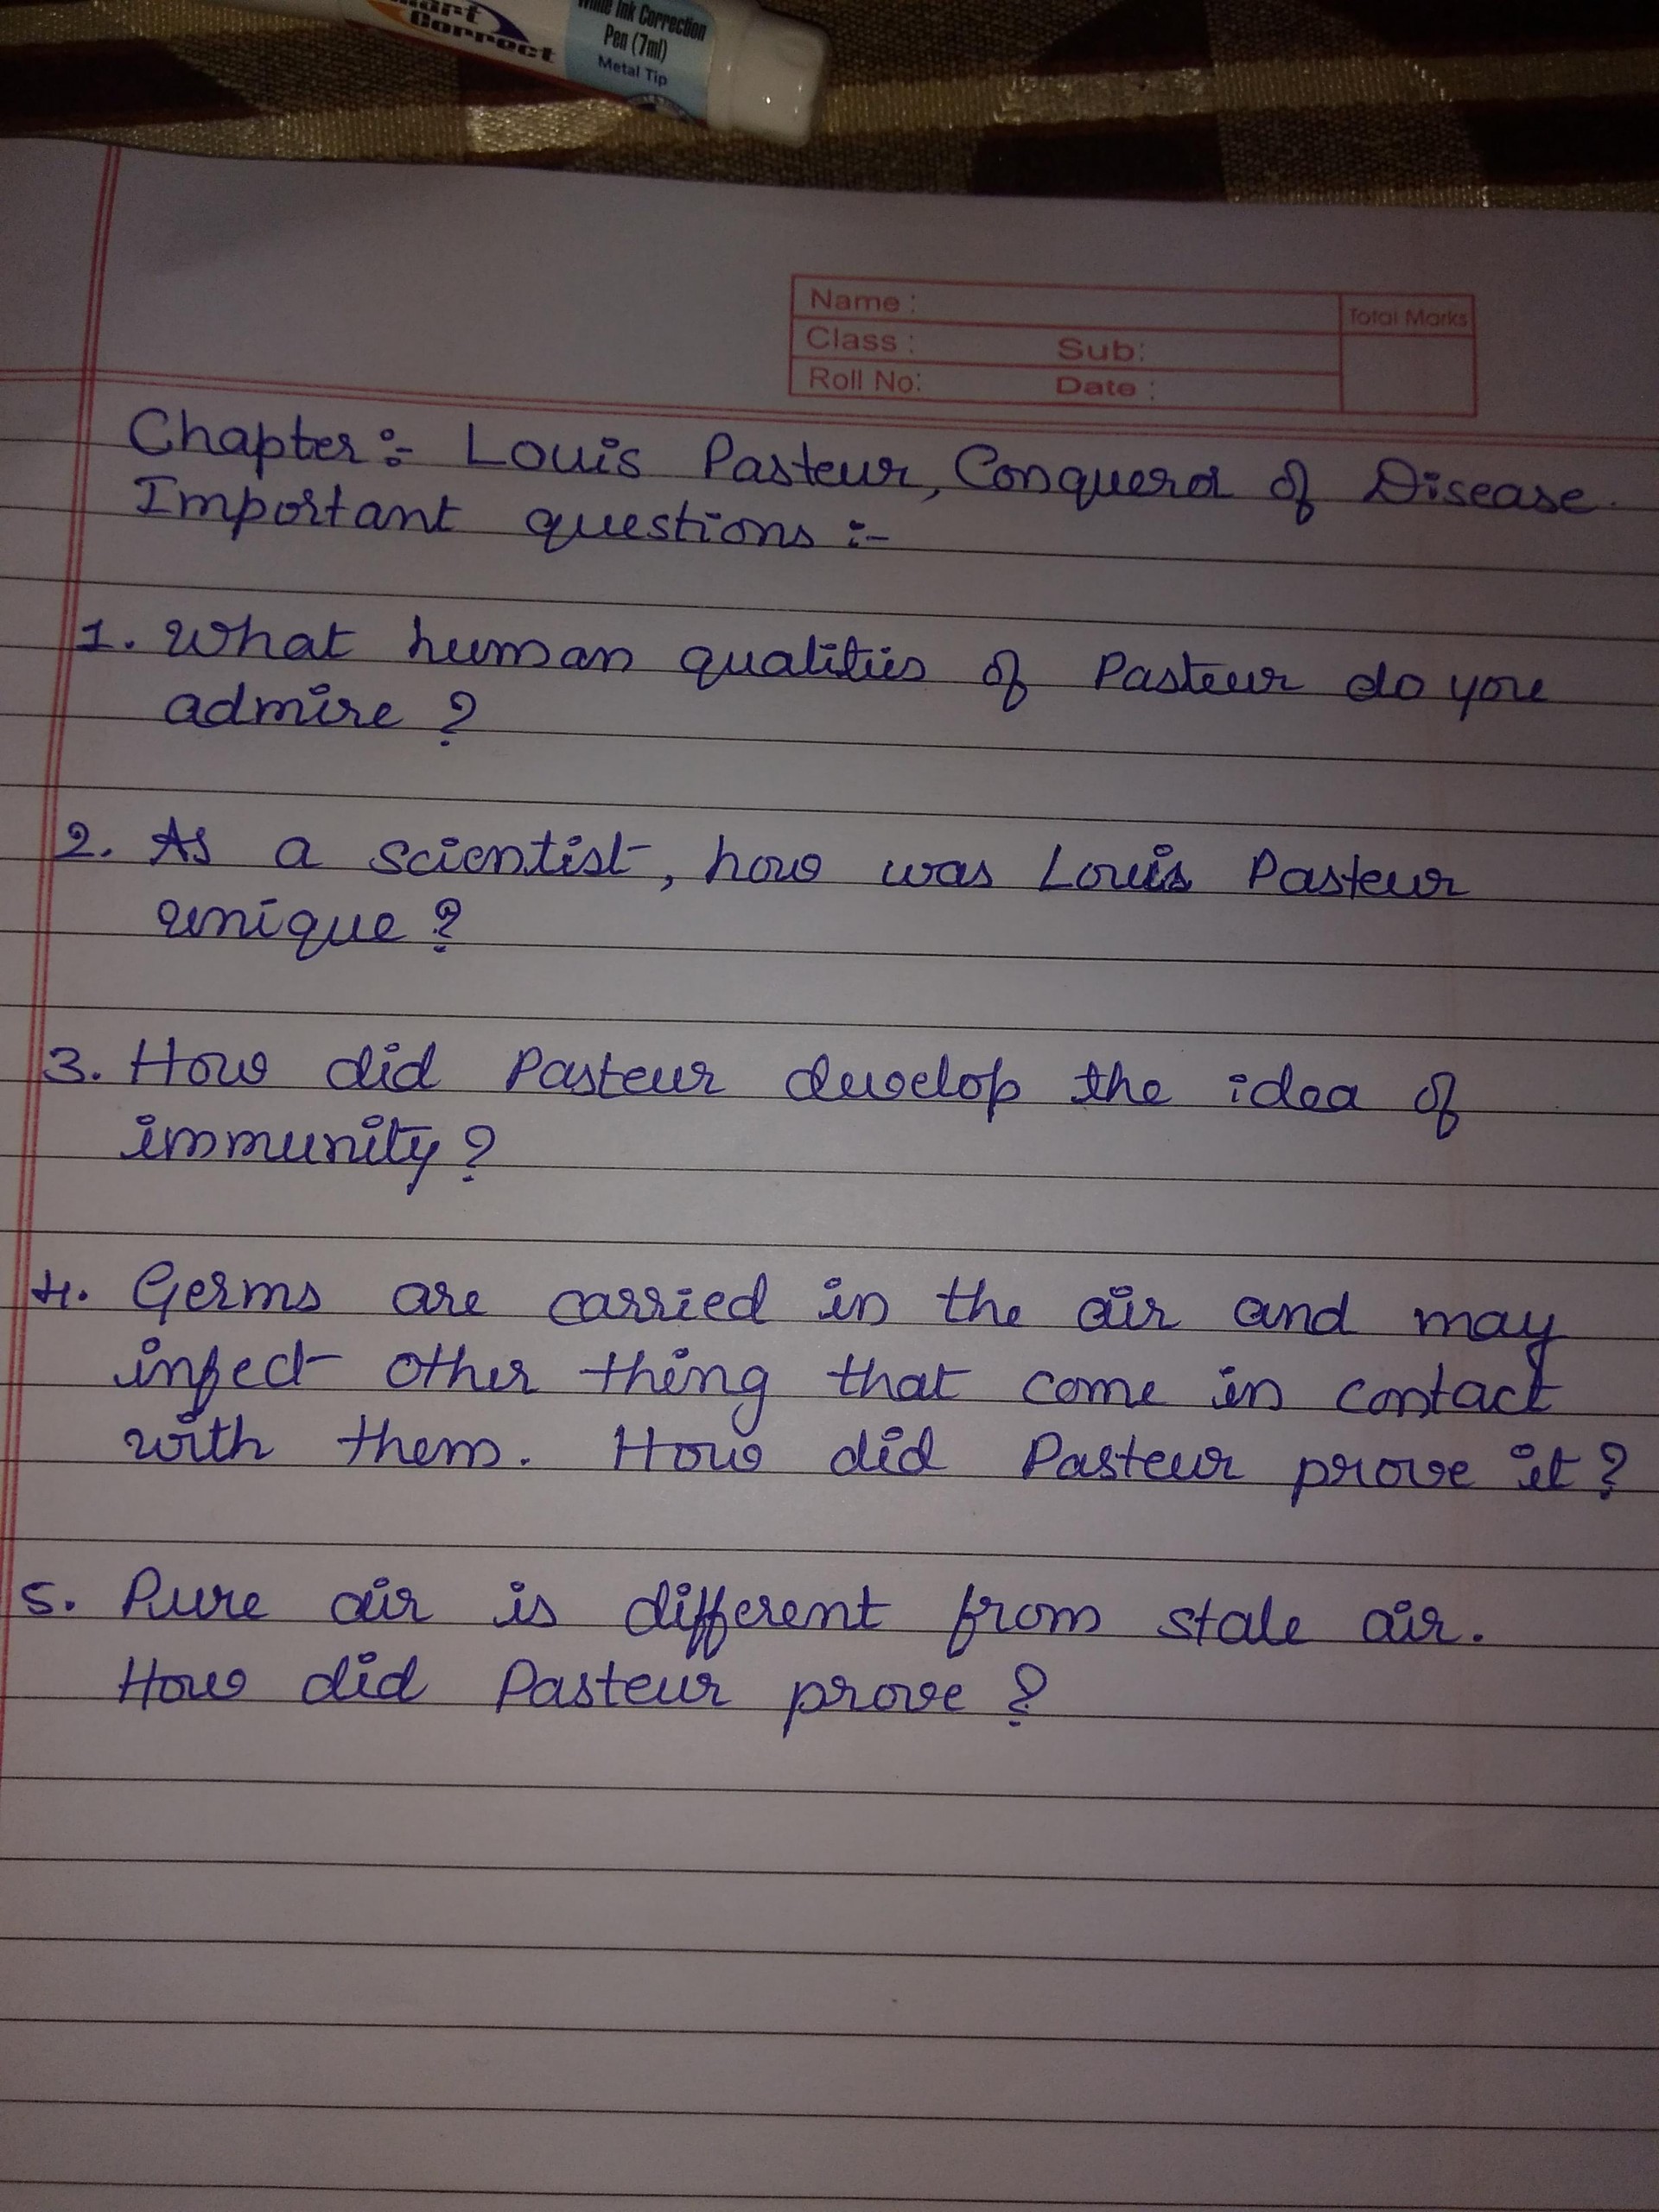 Correct
White Ink Correction
Pen (7ml)
Metal Tip
Name :
Total Marks
Class :
Sub:
Roll No:
Date :
Chapter :- Louis Pasteur, Conqueror of Disease.
Important questions :-
1. What human qualities of Pasteur do you
admire ?
2. As a scientist, how was Louis Pasteur
unique ?
3. How did Pasteur develop the idea of
immunity ?
4. Germs are carried in the air and may
infect other thing that come in contact
with them. How did Pasteur prove it ?
5. Pure air is different from stale air.
How did Pasteur prove ?